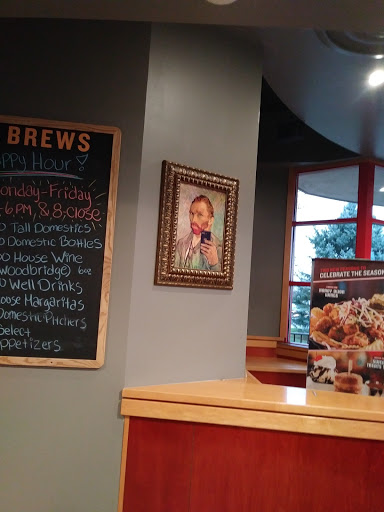 BREWS
ppy Hour!
onday-Friday
6PM, & 8-close
Tall Domestics
Domestic Bottles
House Wine
woodbridge) 6oz
Well Drinks
oose Margaritas
Domestic Pitchers
Select
ppetizers
CELEBRATE THE SEASON